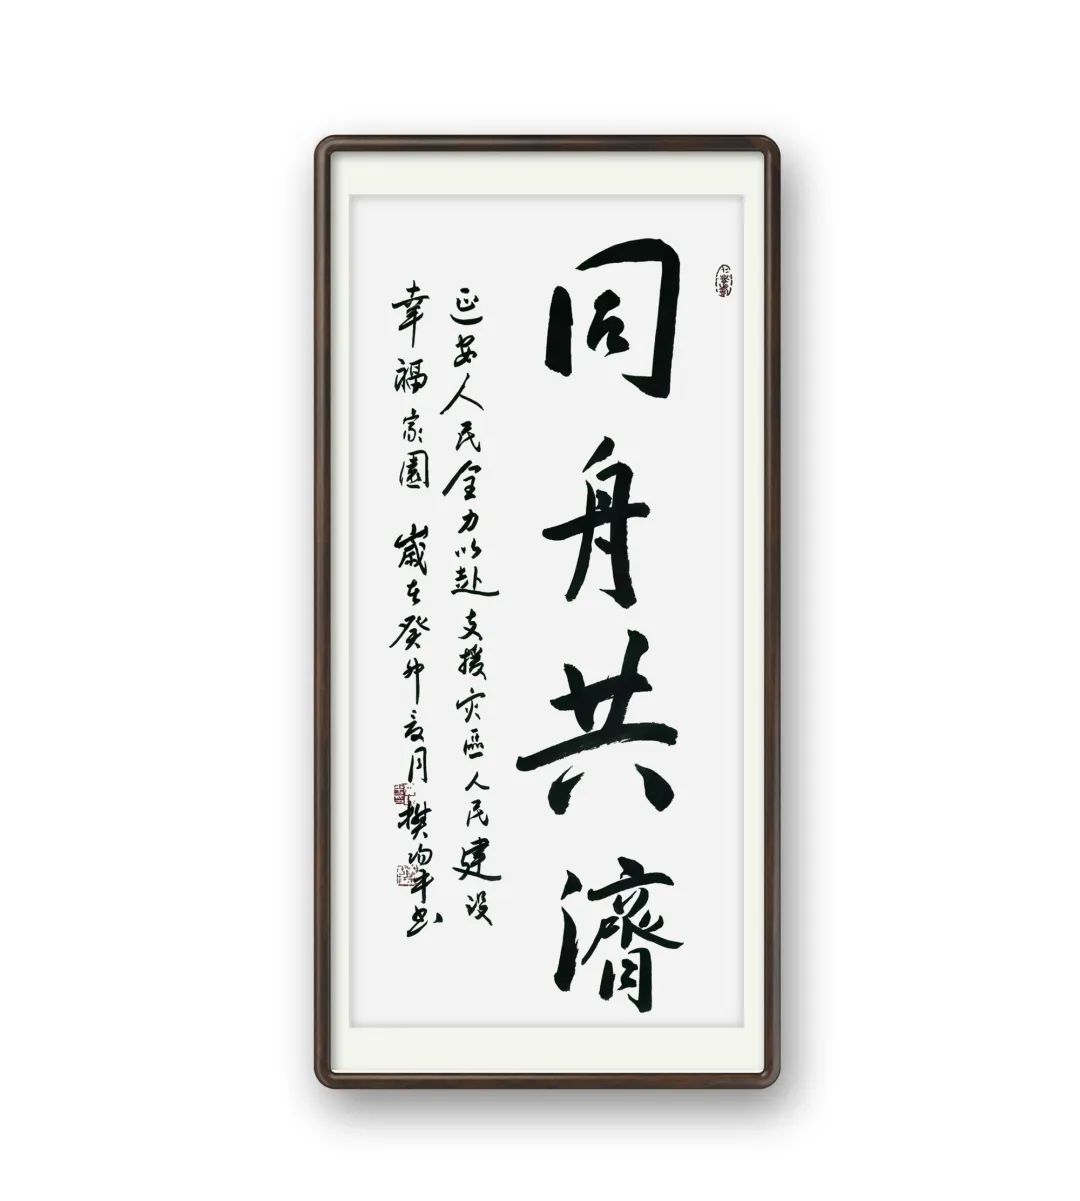 同舟共濟
延安人民全力以赴支援灾區人民建设
幸福家園 歲在癸卯夏月 樊昀平书